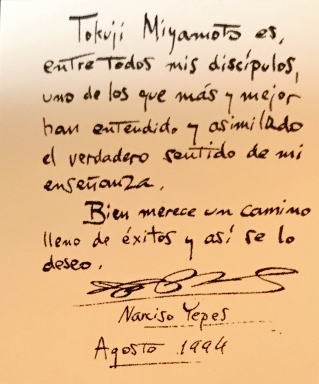 Tokuji Miyamoto es,
entre todos mis discípulos,
uno de los que más y mejor
han entendido y asimilado
el verdadero sentido de mi
enseñanza.
Bien merece un camino
lleno de éxitos y así se lo
deseo.
Narciso Yepes
Agosto 1994